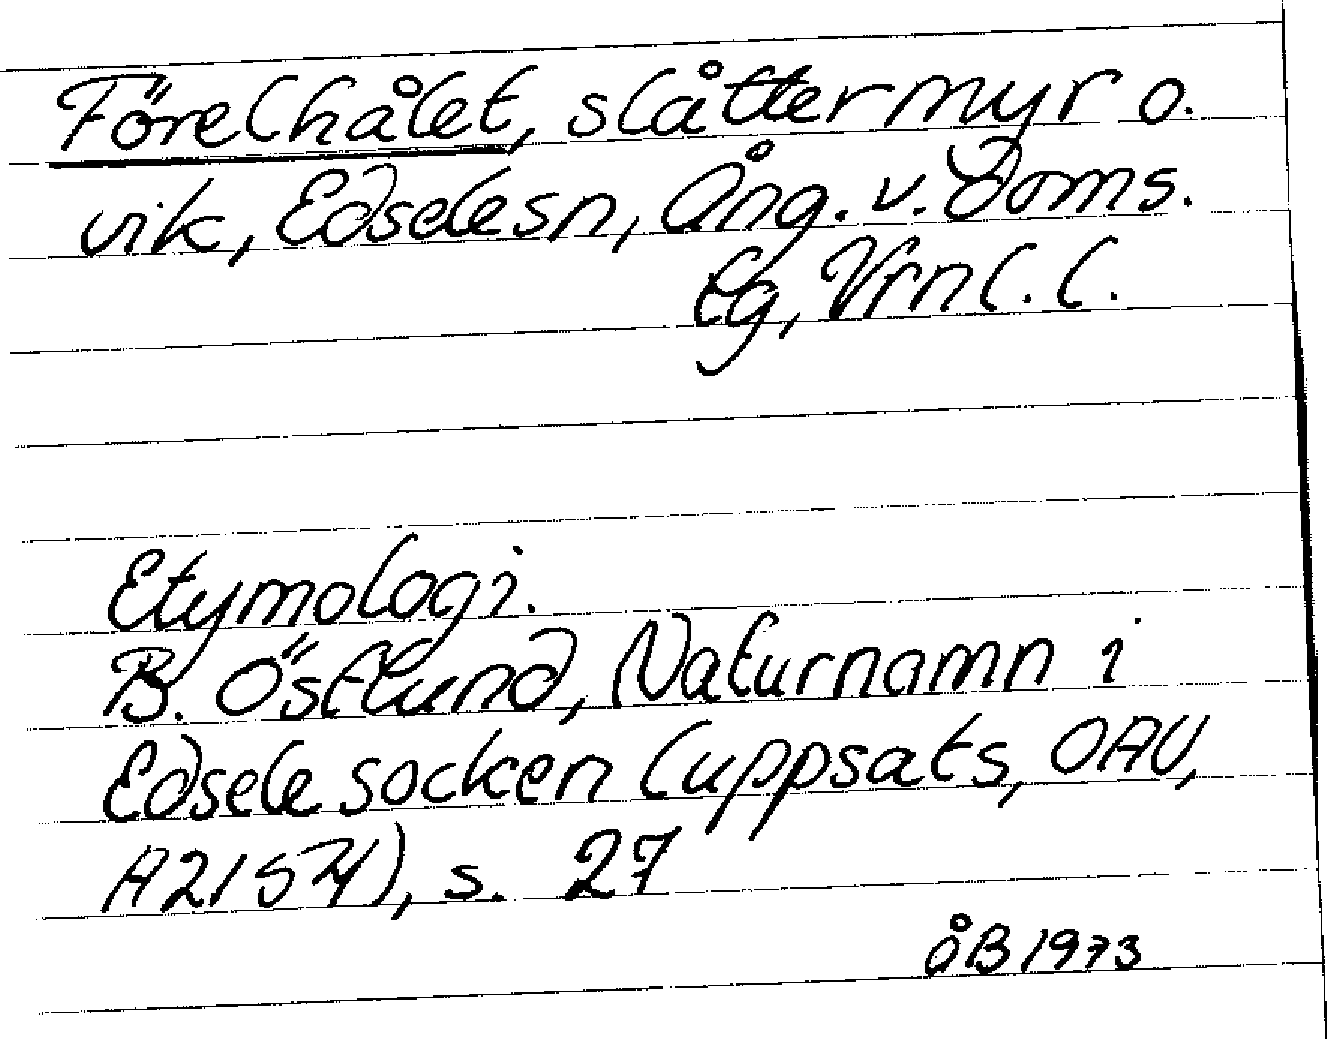 Förelhålet, slåttermyr o.
vik, Edselesn, Ång. v. Doms.
lg, Vrnl. l.
Etymologi.
B. Östlund, Naturnamn i
Edsele socken (uppsats, OAU,
A2154), s. 27
åB 1973